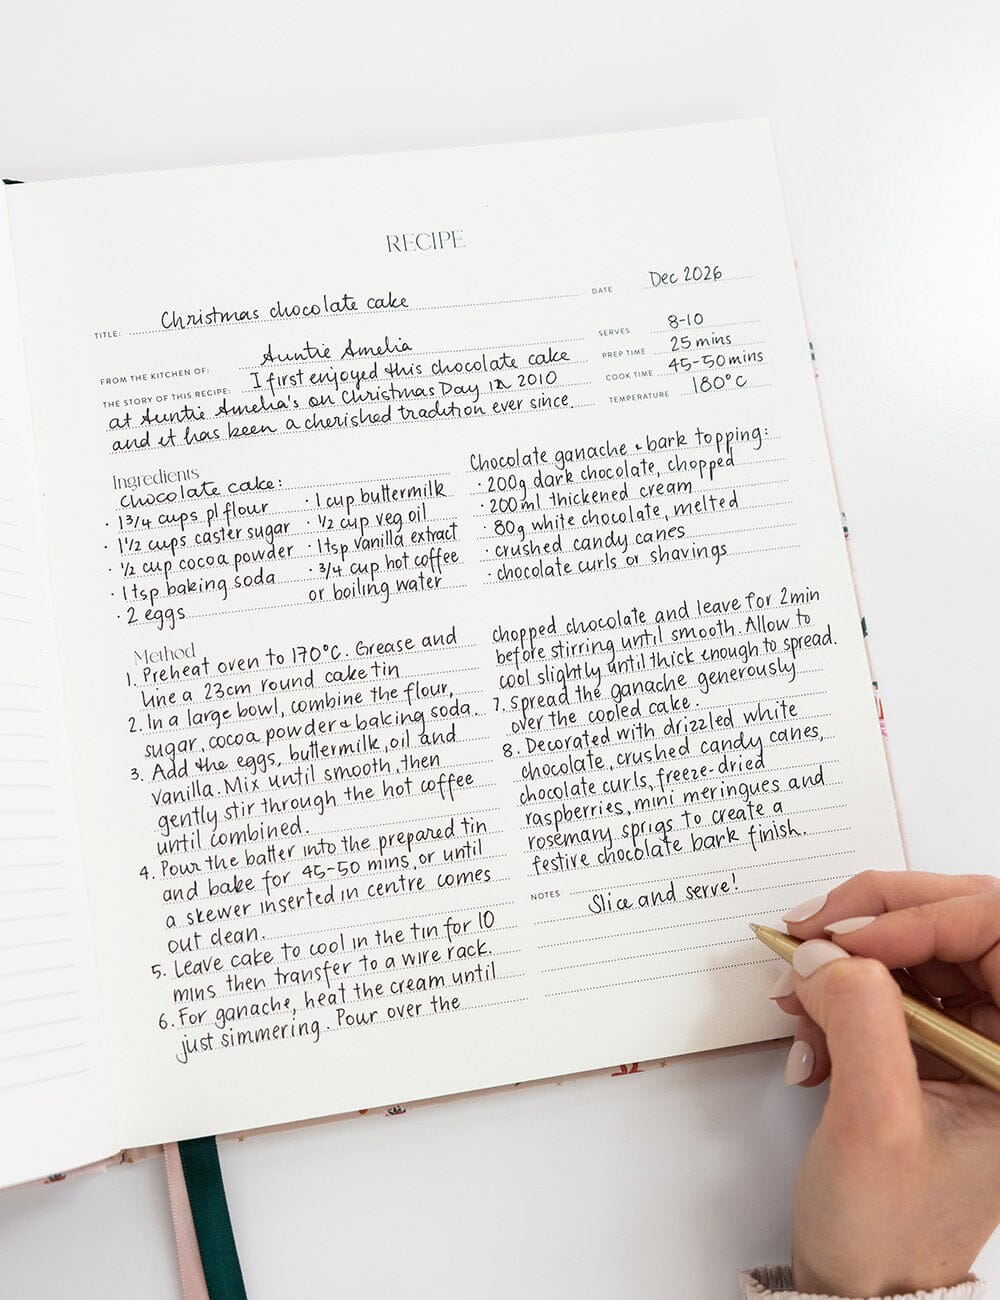 RECIPE
TITLE: Christmas chocolate cake
DATE Dec 2026
FROM THE KITCHEN OF: Auntie Amelia
THE STORY OF THIS RECIPE: I first enjoyed this chocolate cake
at Auntie Amelia's on Christmas Day in 2010
and it has been a cherished tradition ever since.
SERVES 8-10
PREP TIME 25 mins
COOK TIME 45-50 mins
TEMPERATURE 180°C
Ingredients
Chocolate cake:
· 1 3/4 cups pl flour
· 1 1/2 cups caster sugar
· 1/2 cup cocoa powder
· 1 tsp baking soda
· 2 eggs
· 1 cup buttermilk
· 1/2 cup veg oil
· 1 tsp vanilla extract
· 3/4 cup hot coffee
or boiling water
Chocolate ganache & bark topping:
· 200g dark chocolate, chopped
· 200ml thickened cream
· 80g white chocolate, melted
· crushed candy canes
· chocolate curls or shavings
Method
1. Preheat oven to 170°C. Grease and
line a 23cm round cake tin
2. In a large bowl, combine the flour,
sugar, cocoa powder & baking soda.
3. Add the eggs, buttermilk, oil and
vanilla. Mix until smooth, then
gently stir through the hot coffee
until combined.
4. Pour the batter into the prepared tin
and bake for 45-50 mins, or until
a skewer inserted in centre comes
out clean.
5. Leave cake to cool in the tin for 10
mins then transfer to a wire rack.
6. For ganache, heat the cream until
just simmering. Pour over the
chopped chocolate and leave for 2min
before stirring until smooth. Allow to
cool slightly until thick enough to spread.
7. Spread the ganache generously
over the cooled cake.
8. Decorated with drizzled white
chocolate, crushed candy canes,
chocolate curls, freeze-dried
raspberries, mini meringues and
rosemary sprigs to create a
festive chocolate bark finish.
NOTES Slice and serve!